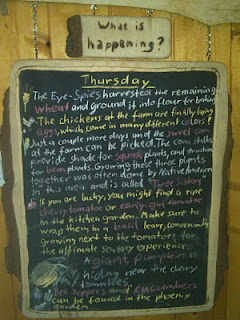 What is
happening?
Thursday
The Eye-Spies harvested the remaining
wheat and ground it into flour for baking
The chickens at the farm are finally laying
eggs, which come in many different colors!
Just a couple more days and the sweet corn
at the farm can be picked. The corn stalks
provide shade for squash plants, and structure
for bean plants. Growing these three plants
together was often done by Native Americans
in this area and is called "Three Sisters
If you are lucky, you might find a ripe
cherry tomatoe or early girl tomatoe
in the kitchen garden. Make sure to
wrap them in a basil leaf, conveniently
growing next to the tomatoes for
the ultimate sensory experience.
A giant Pumpkin is
hiding near the cherry
tomatoes
Bell Peppers and cucumbers
can be found in the phoenix
garden